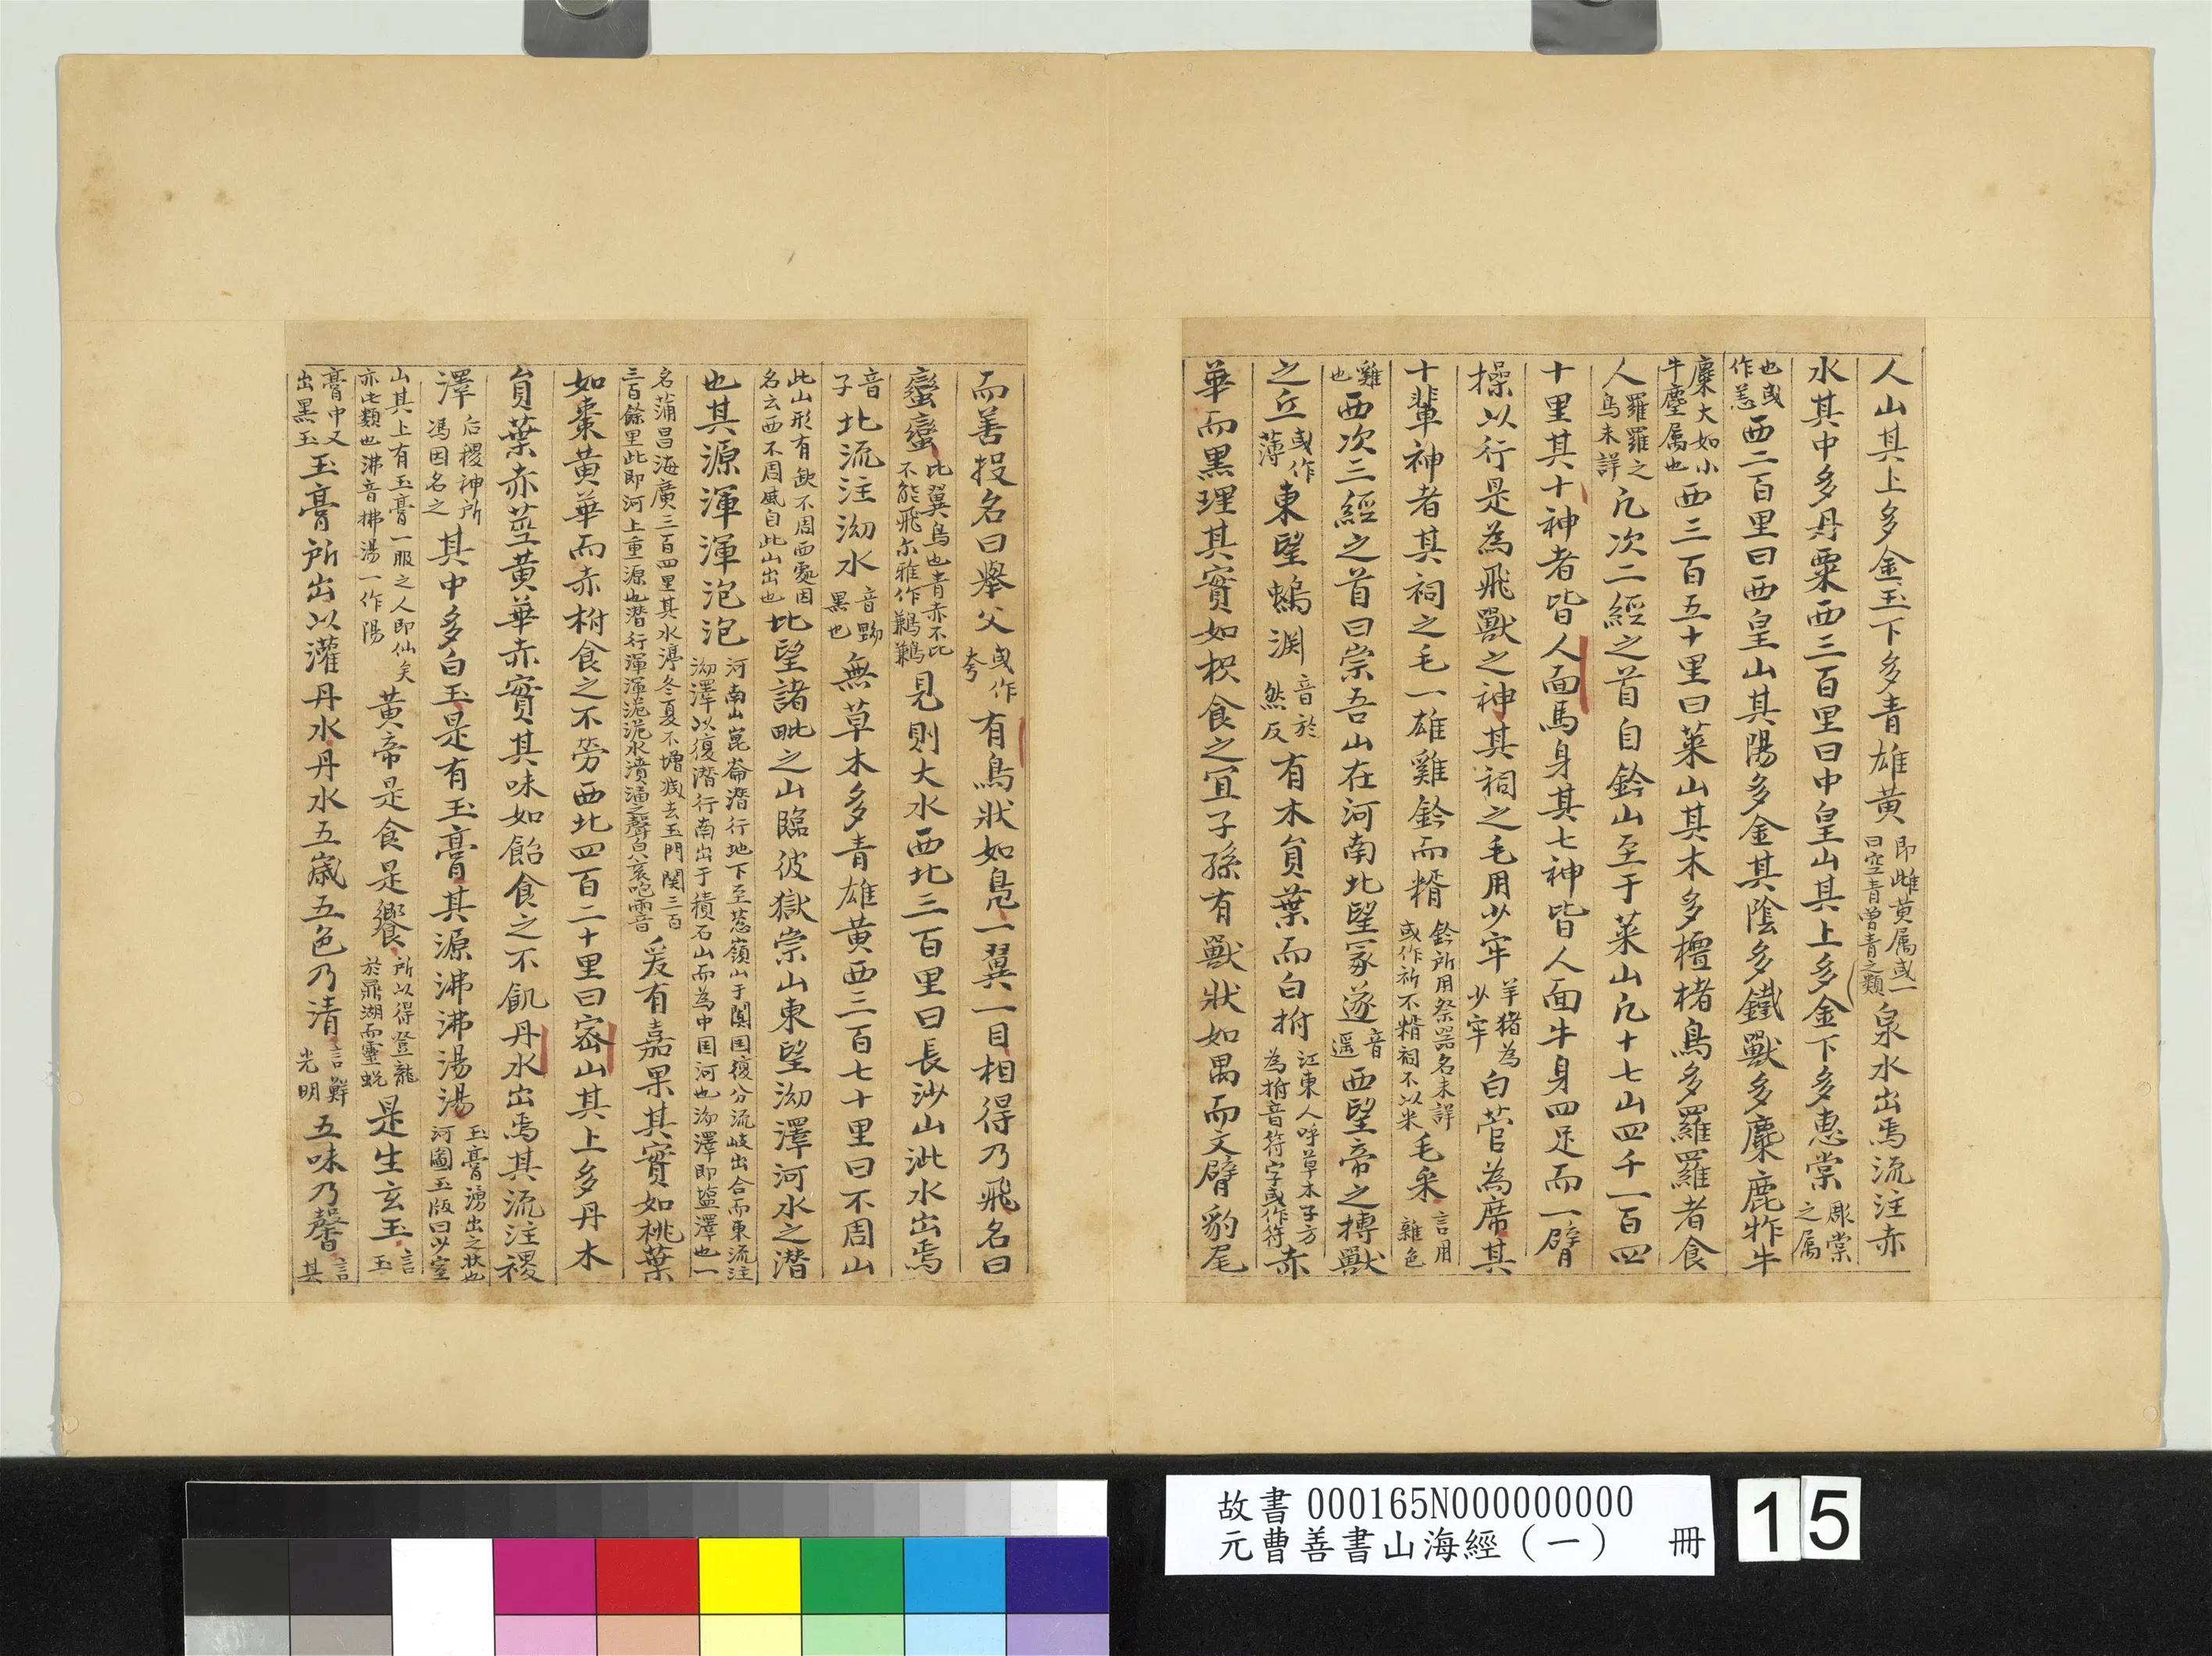 人山其上多金玉下多青雄黃即雌黃属或一曰空青曾青之類泉水出焉流注赤
水其中多丹粟西三百里曰中皇山其上多金下多惠棠彫棠之属
也或作恙西二百里曰西皇山其陽多金其陰多鐵獸多麋鹿㸲牛
麋大如小牛麈属也西三百五十里曰萊山其木多檀楮鳥多羅羅者食
人羅羅之鳥未詳凡次二經之首自鈐山至于萊山凡十七山四千一百四
十里其十神者皆人面馬身其七神皆人面牛身四足而一臂
操以行是為飛獸之神其祠之毛用少牢羊豬為少牢白菅為席其
十輩神者其祠之毛一雄雞鈐而糈鈐所用祭器名未詳或作祈不糈祠不以米毛采言用雜色
雞也西次三經之首曰崇吾山在河南北望冢遂音遥西望帝之搏獸
之丘或作薄東望䗡渕音於然反有木員葉而白拊江東人呼草木子方為拊音符字或作符赤
華而黑理其實如枳食之宜子孫有獸狀如禺而文臂豹尾
而善投名曰舉父或作夸有鳥狀如鳧一翼一目相得乃飛名曰
蠻蠻比翼鳥也青赤不比不能飛尓雅作鶼鶼見則大水西北三百里曰長沙山泚水出焉
音子北流注泑水音黝黑也無草木多青雄黃西三百七十里曰不周山
此山形有缺不周匝處因名云西不周風自此山出也北望諸毗之山臨彼嶽崇山東望泑澤河水之潛
也其源渾渾泡泡河南出崑崙潛行地下至葱嶺山于闐囯復分流岐出合而東流注泑澤以復潛行南出于積石山而為中囯河也泑澤即塩澤也一
名蒲昌海廣三百四里其水渟冬夏不增减去玉門関三百三百餘里此即河上重源也潛行渾渾泡泡水濆涌之聲㒵衮咆両音爰有嘉果其實如桃葉
如棗黃華而赤柎食之不勞西北四百二十里曰峚山其上多丹木
員葉赤莖黃華赤實其味如飴食之不飢丹水出焉其流注稷
澤后稷神所馮因名之其中多白玉是有玉膏其源沸沸湯湯玉膏湧出之狀也河圖玉版曰少室
山其上有玉膏一服之人即仙矣亦此類也沸音拂湯一作陽黃帝是食是饗所以得登龍於鼎湖而靈蛻是生玄玉言玉
膏中又出黑玉玉膏所出以灌丹水丹水五歲五色乃清言鮮光明五味乃馨言其
故書 000165N000000000
元曹善書山海經（一） 冊
15